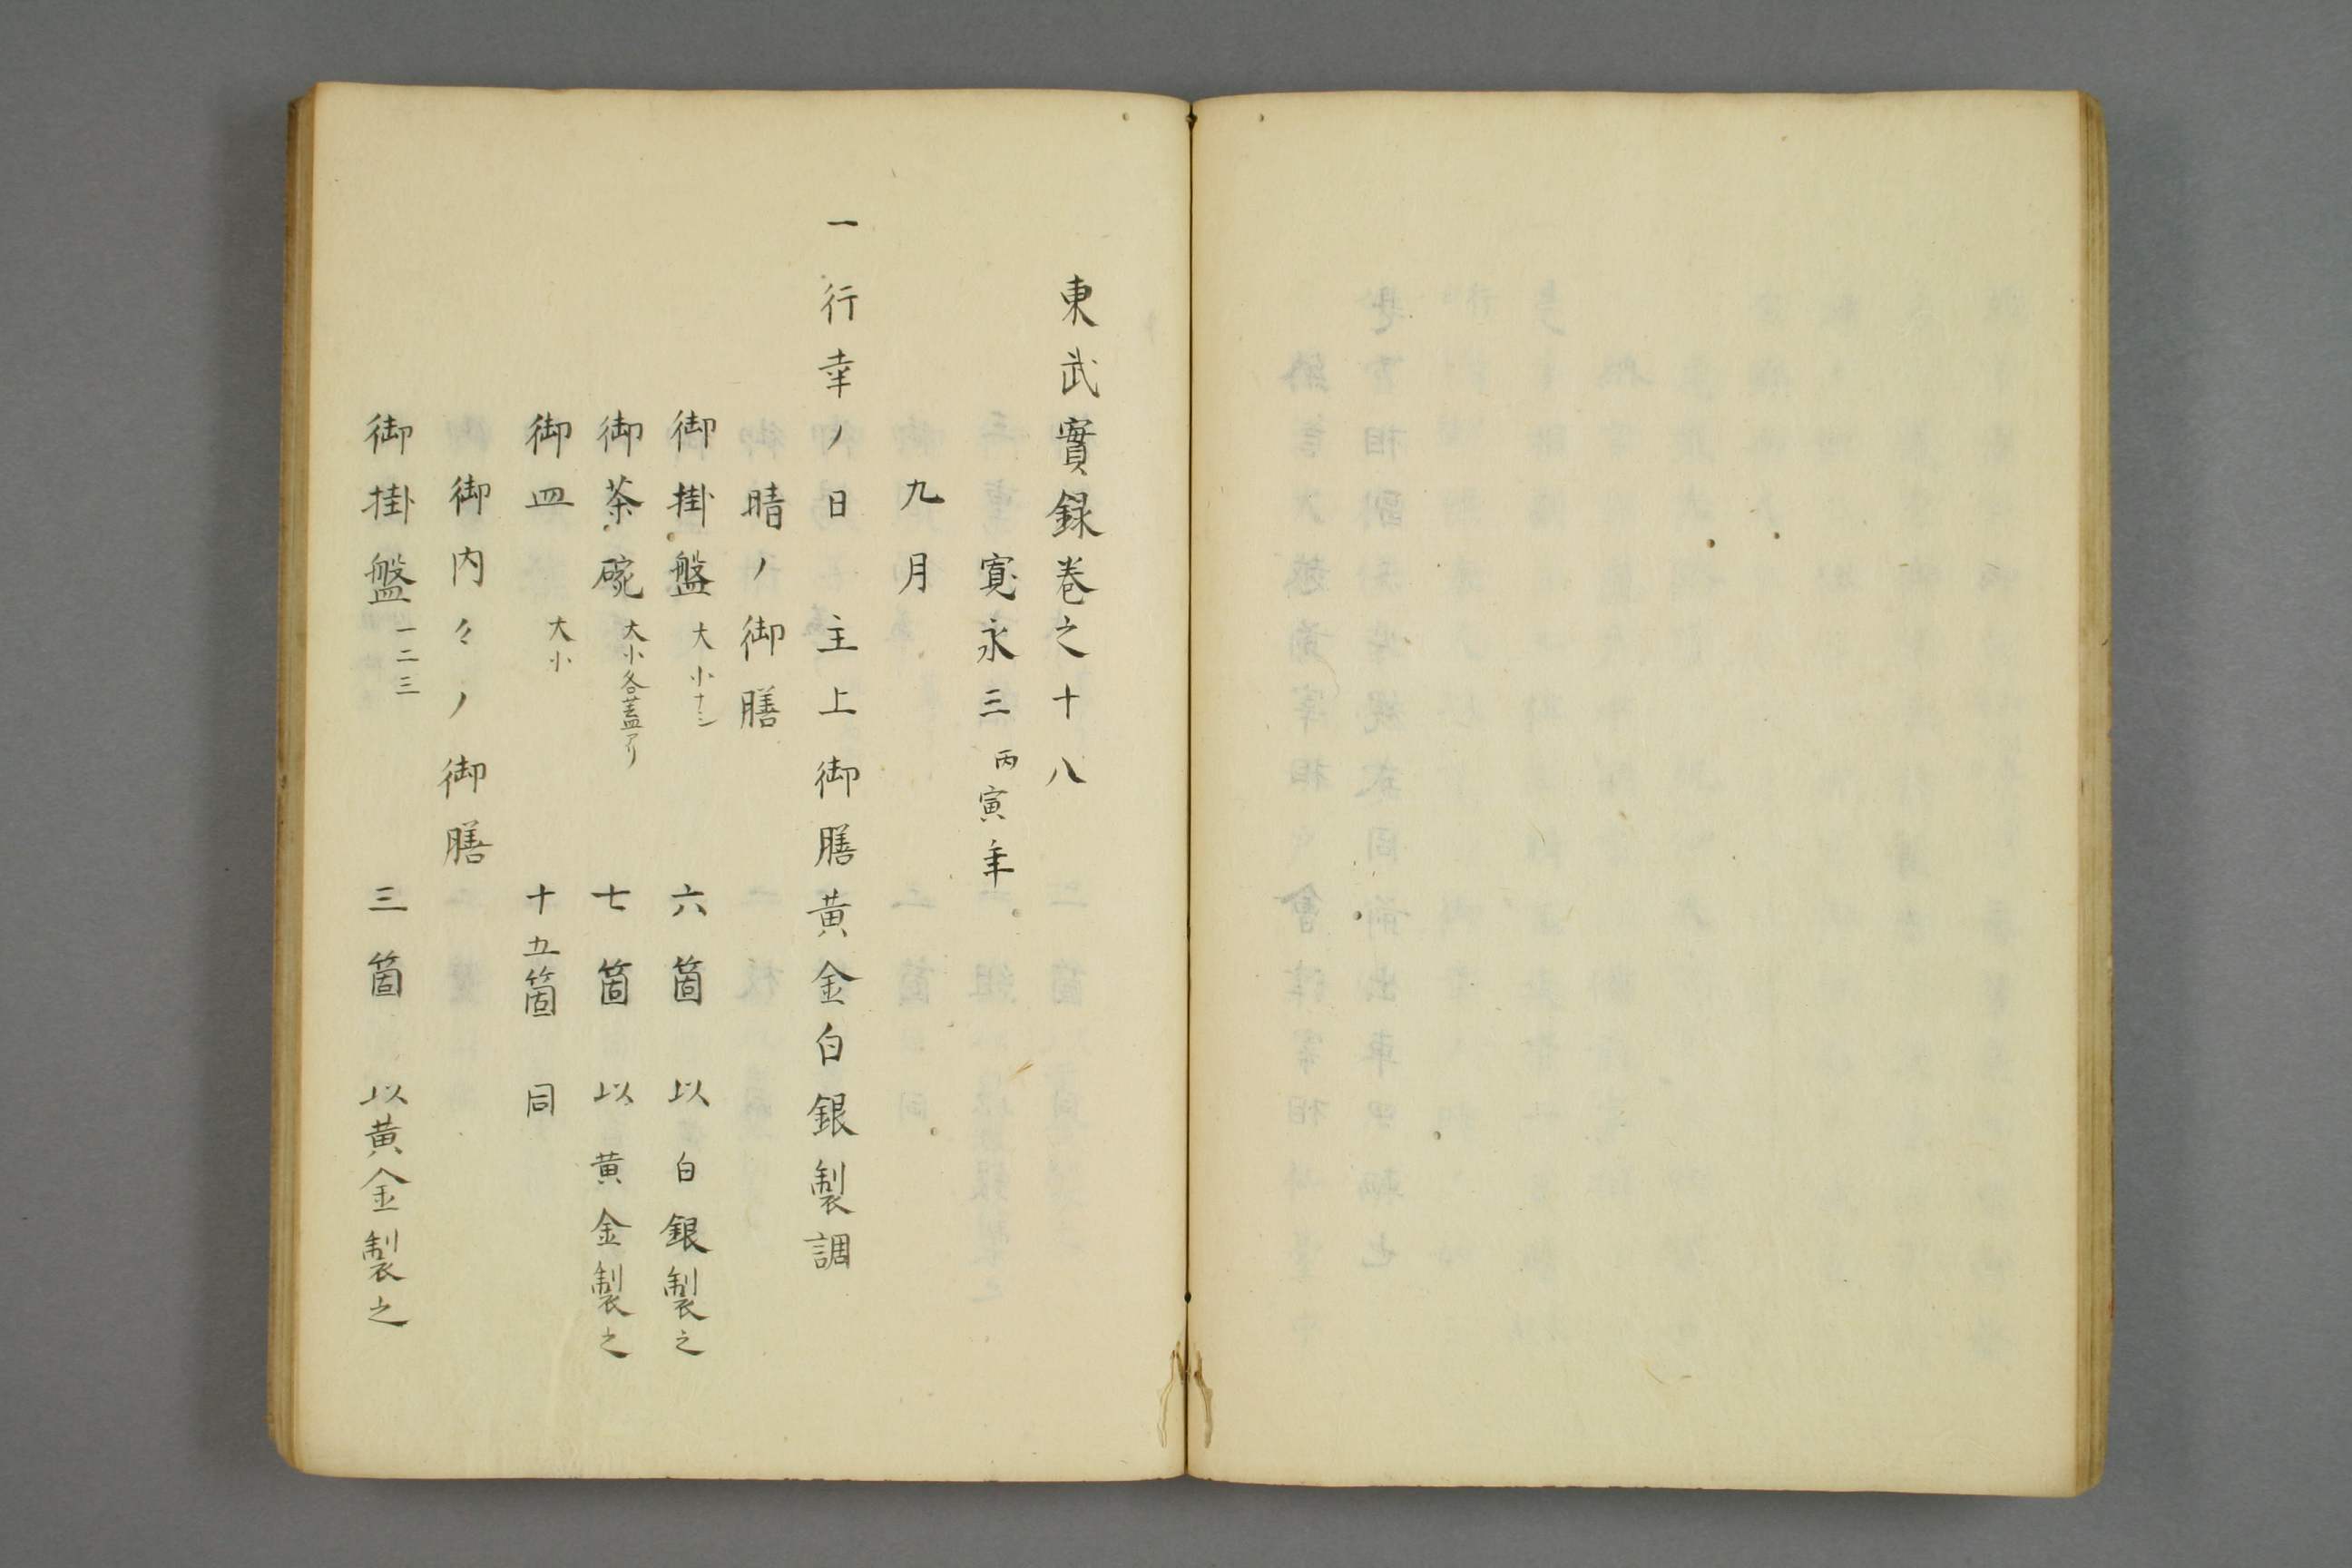 東武實録巻之十八
寛永三丙寅年
九月
一行幸ノ日主上御膳黄金白銀製調
晴ノ御膳
御掛盤大小ナシ 六箇 以白銀製之
御茶碗大小各蓋アリ 七箇 以黄金製之
御皿 大小 十五箇 同
御内々ノ御膳
御掛盤一二三 三箇 以黄金製之